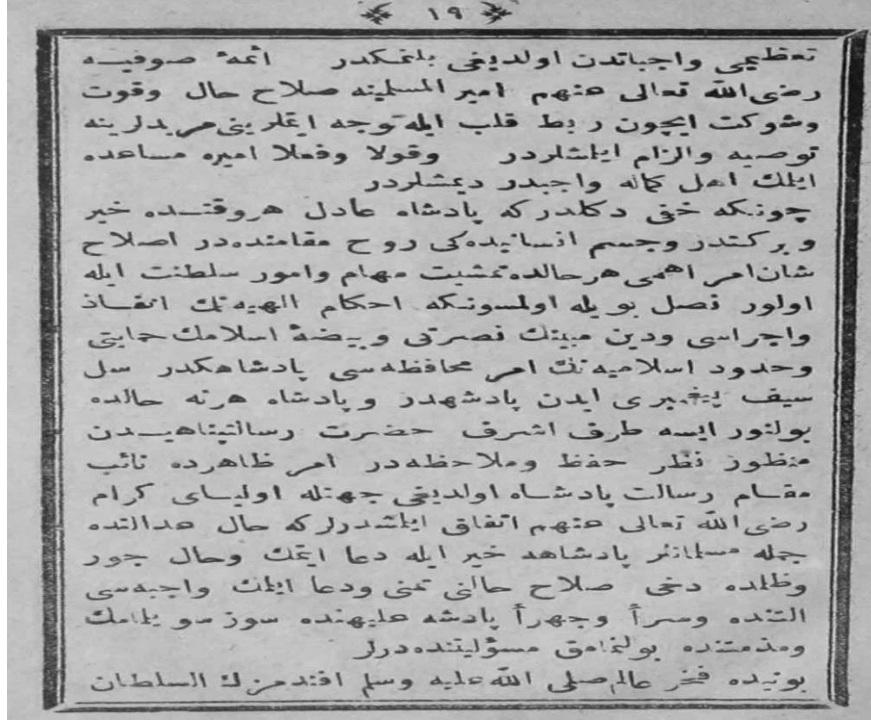 ۱۹
تعظیمی واجباتدن اولدیغنی بلنمکدر ائمهٔ صوفیـه
رضی‌الله تعالی عنهم امیر المسلمینه صلاح حال وقوت
وشوکت ایچون ربط قلب ایله توجه ایتملرینی مریدلرینه
توصیه والزام ایلمشلردر وقولا وفعلا امیره مساعده
ایلمك اهل کماله واجبدر دیمشلردر
چونکه خفی دکلدرکه پادشاه عادل هروقتـده خیر
وبرکتدر وجسم انسانیده‌کی روح مقامنده‌در اصلاح
شان‌امر اهمی هرحالده تمشیت مهام وامور سلطنت ایله
اولور نصل بویله اولمسونکه احکام الهیه‌نك انفـاذ
واجراسی ودین مبینك نصرتی وبیضهٔ اسلامك حمایتی
وحدود اسلامیه‌نك امر محافظه‌سی پادشاهکدر سل
سیف پیغمبری ایدن پادشهدر وپادشاه هرنه حالده
بولنور ایسه طرف اشرف حضرت رسالتپناهیـدن
منظور نظر حفظ وملاحظه‌در امر ظاهرده نائب
مقـام رسالت پادشـاه اولدیغی جهتله اولیـای کرام
رضی‌الله تعالی عنهم اتفاق ایلمشدرلرکه حال عدالتده
جمله مسلمانلر پادشاهه خیر ایله دعا ایتمك وحال جور
وظلمده دخی صلاح حالنی تمنی ودعا ایلمك واجبه‌سی
التنده وسراً وجهراً پادشه علیهنده سوز سویلمامك
ومذمتنده بولنمامق مسؤلیتنده‌درلر
بونیده فخر عالم صلی الله علیه وسلم افندمزك السلطان